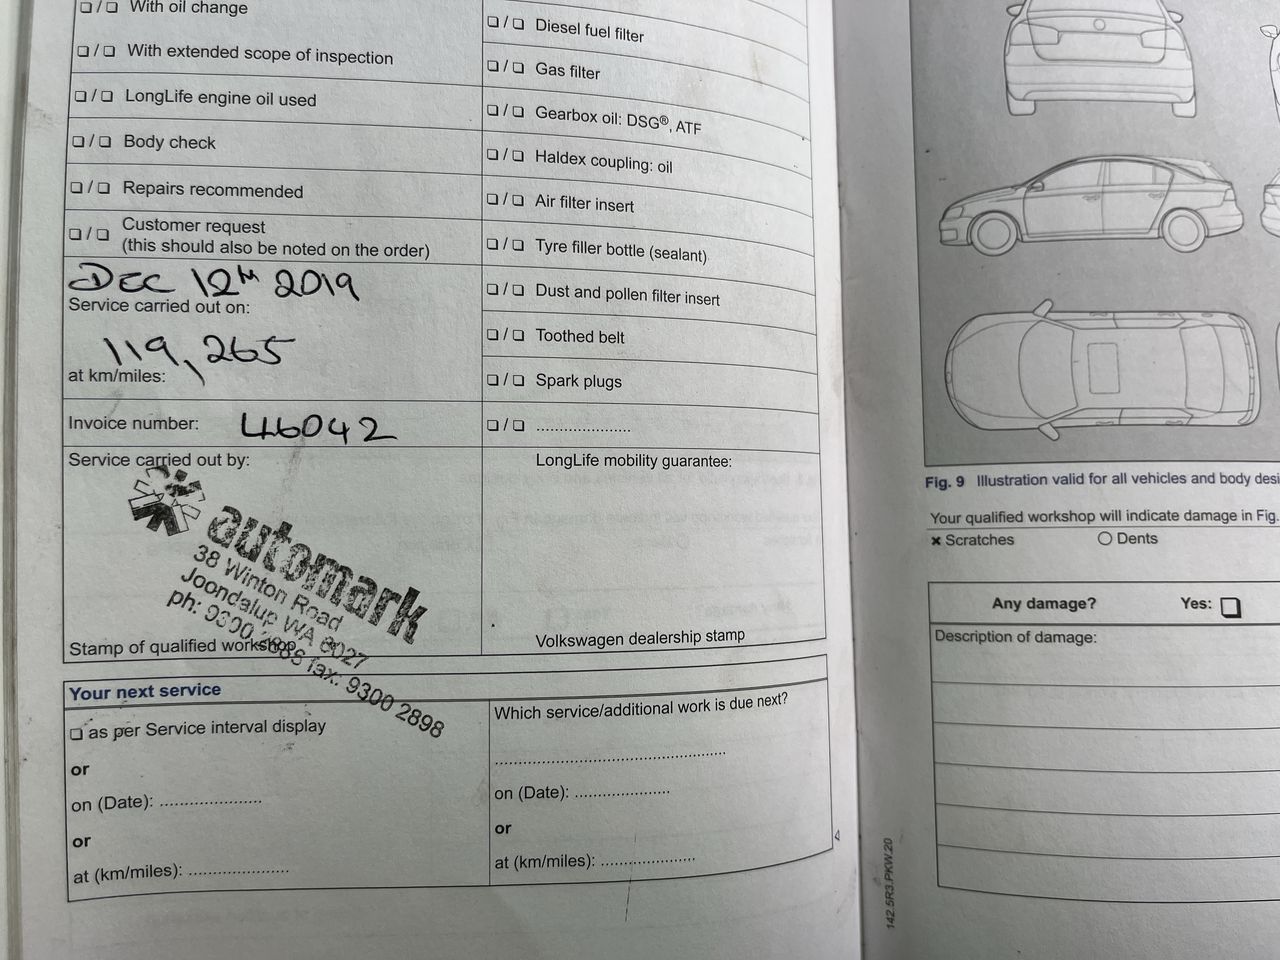 ❏ / ❏ With oil change
❏ / ❏ With extended scope of inspection
❏ / ❏ LongLife engine oil used
❏ / ❏ Body check
❏ / ❏ Repairs recommended
❏ / ❏ Customer request
(this should also be noted on the order)
DEC 12th 2019
Service carried out on:
119,265
at km/miles:
Invoice number: 46042
Service carried out by:
automark
38 Winton Road
Joondalup WA 6027
ph: 9300 fax: 9300 2898
Stamp of qualified workshop
❏ / ❏ Diesel fuel filter
❏ / ❏ Gas filter
❏ / ❏ Gearbox oil: DSG®, ATF
❏ / ❏ Haldex coupling: oil
❏ / ❏ Air filter insert
❏ / ❏ Tyre filler bottle (sealant)
❏ / ❏ Dust and pollen filter insert
❏ / ❏ Toothed belt
❏ / ❏ Spark plugs
❏ / ❏ .....................
LongLife mobility guarantee:
Volkswagen dealership stamp
Your next service
❏ as per Service interval display
or
on (Date): ......................
or
at (km/miles): ......................
Which service/additional work is due next?
..................................................
on (Date): .....................
or
at (km/miles): .....................
Fig. 9 Illustration valid for all vehicles and body desi
Your qualified workshop will indicate damage in Fig.
× Scratches
O Dents
Any damage? Yes: ❏
Description of damage:
142.5R3.PKW.20